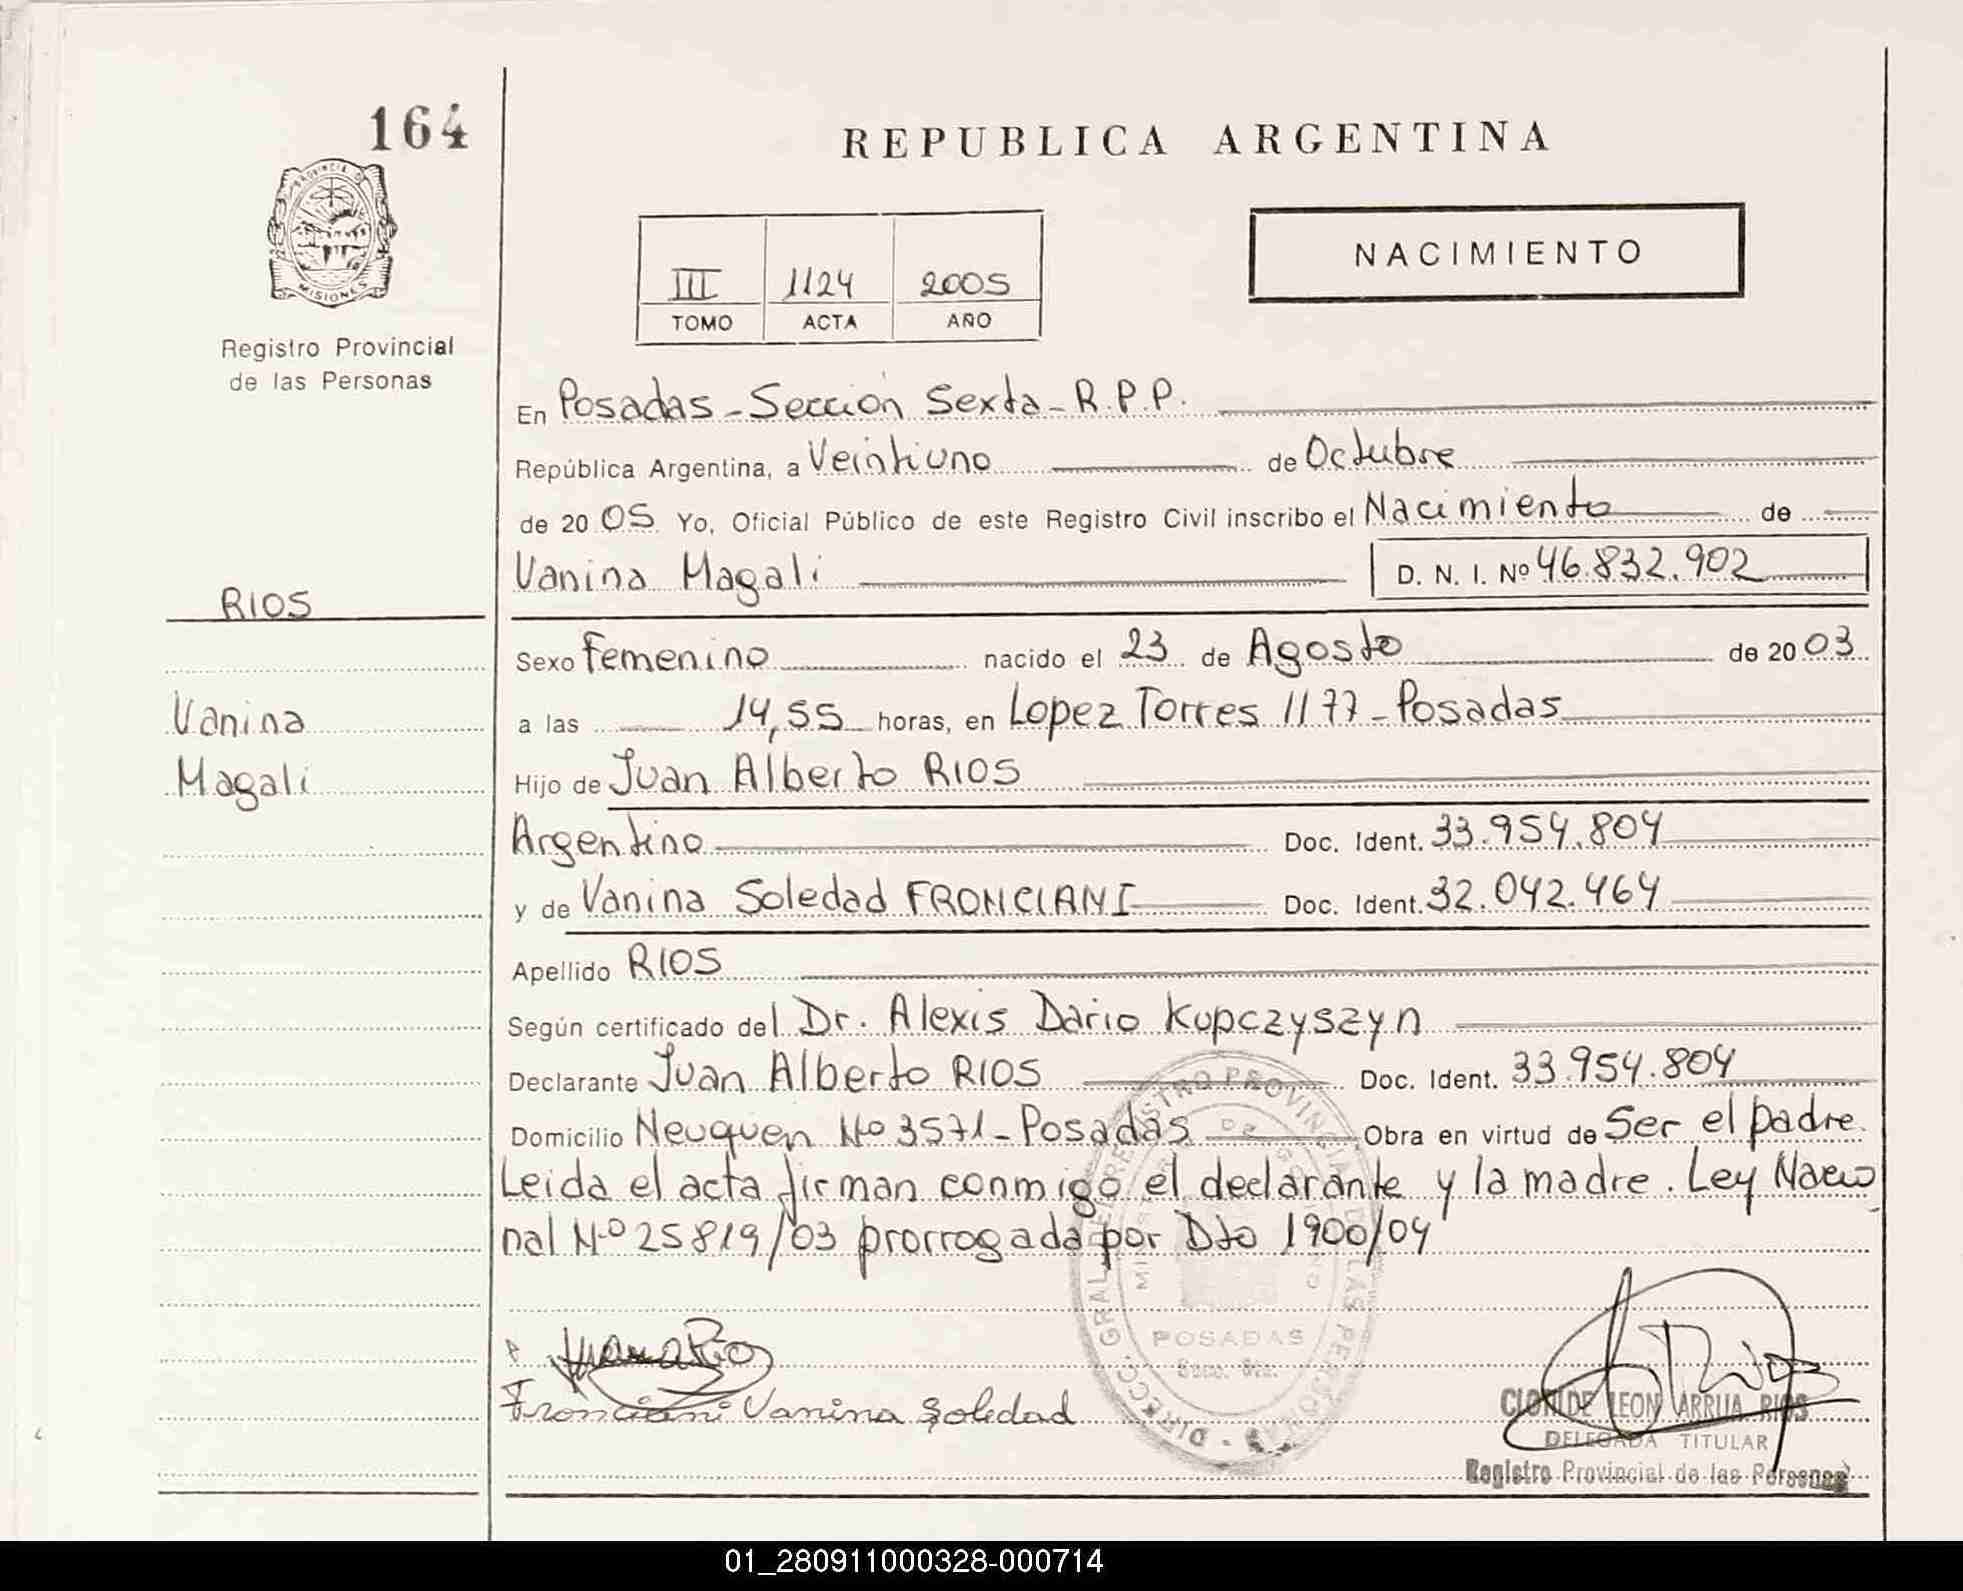 164
REPUBLICA ARGENTINA
PROVINCIA D
MISIONES
Registro Provincial
de las Personas
III 1124 2005
TOMO ACTA AÑO
NACIMIENTO
En Posadas - Sección Sexta - R.P.P.
República Argentina, a Veintiuno de Octubre
de 2005 Yo, Oficial Público de este Registro Civil inscribo el Nacimiento de
Vanina Magali D. N. I. Nº 46.832.902
RIOS
Vanina
Magali
Sexo Femenino nacido el 23 de Agosto de 2003
a las 14,55 horas, en Lopez Torres 1177 - Posadas
Hijo de Juan Alberto RIOS
Argentino Doc. Ident. 33.954.804
y de Vanina Soledad FRONCIANI Doc. Ident. 32.042.464
Apellido RIOS
Según certificado del Dr. Alexis Dario Kupczyszyn
Declarante Juan Alberto RIOS Doc. Ident. 33.954.804
Domicilio Neuquen Nº 3571 - Posadas Obra en virtud de Ser el padre
Leida el acta firman conmigo el declarante y la madre. Ley Nacio
nal Nº 25819/03 prorrogada por Dto 1900/04
DIRECC. GRAL. DEL REGISTRO PROVINCIAL DE LAS PERSONAS
POSADAS
Fronciani Vanina Soledad
CLOTILDE LEON ARRUA RIOS
DELEGADA TITULAR
Registro Provincial de las Personas
01_280911000328-000714